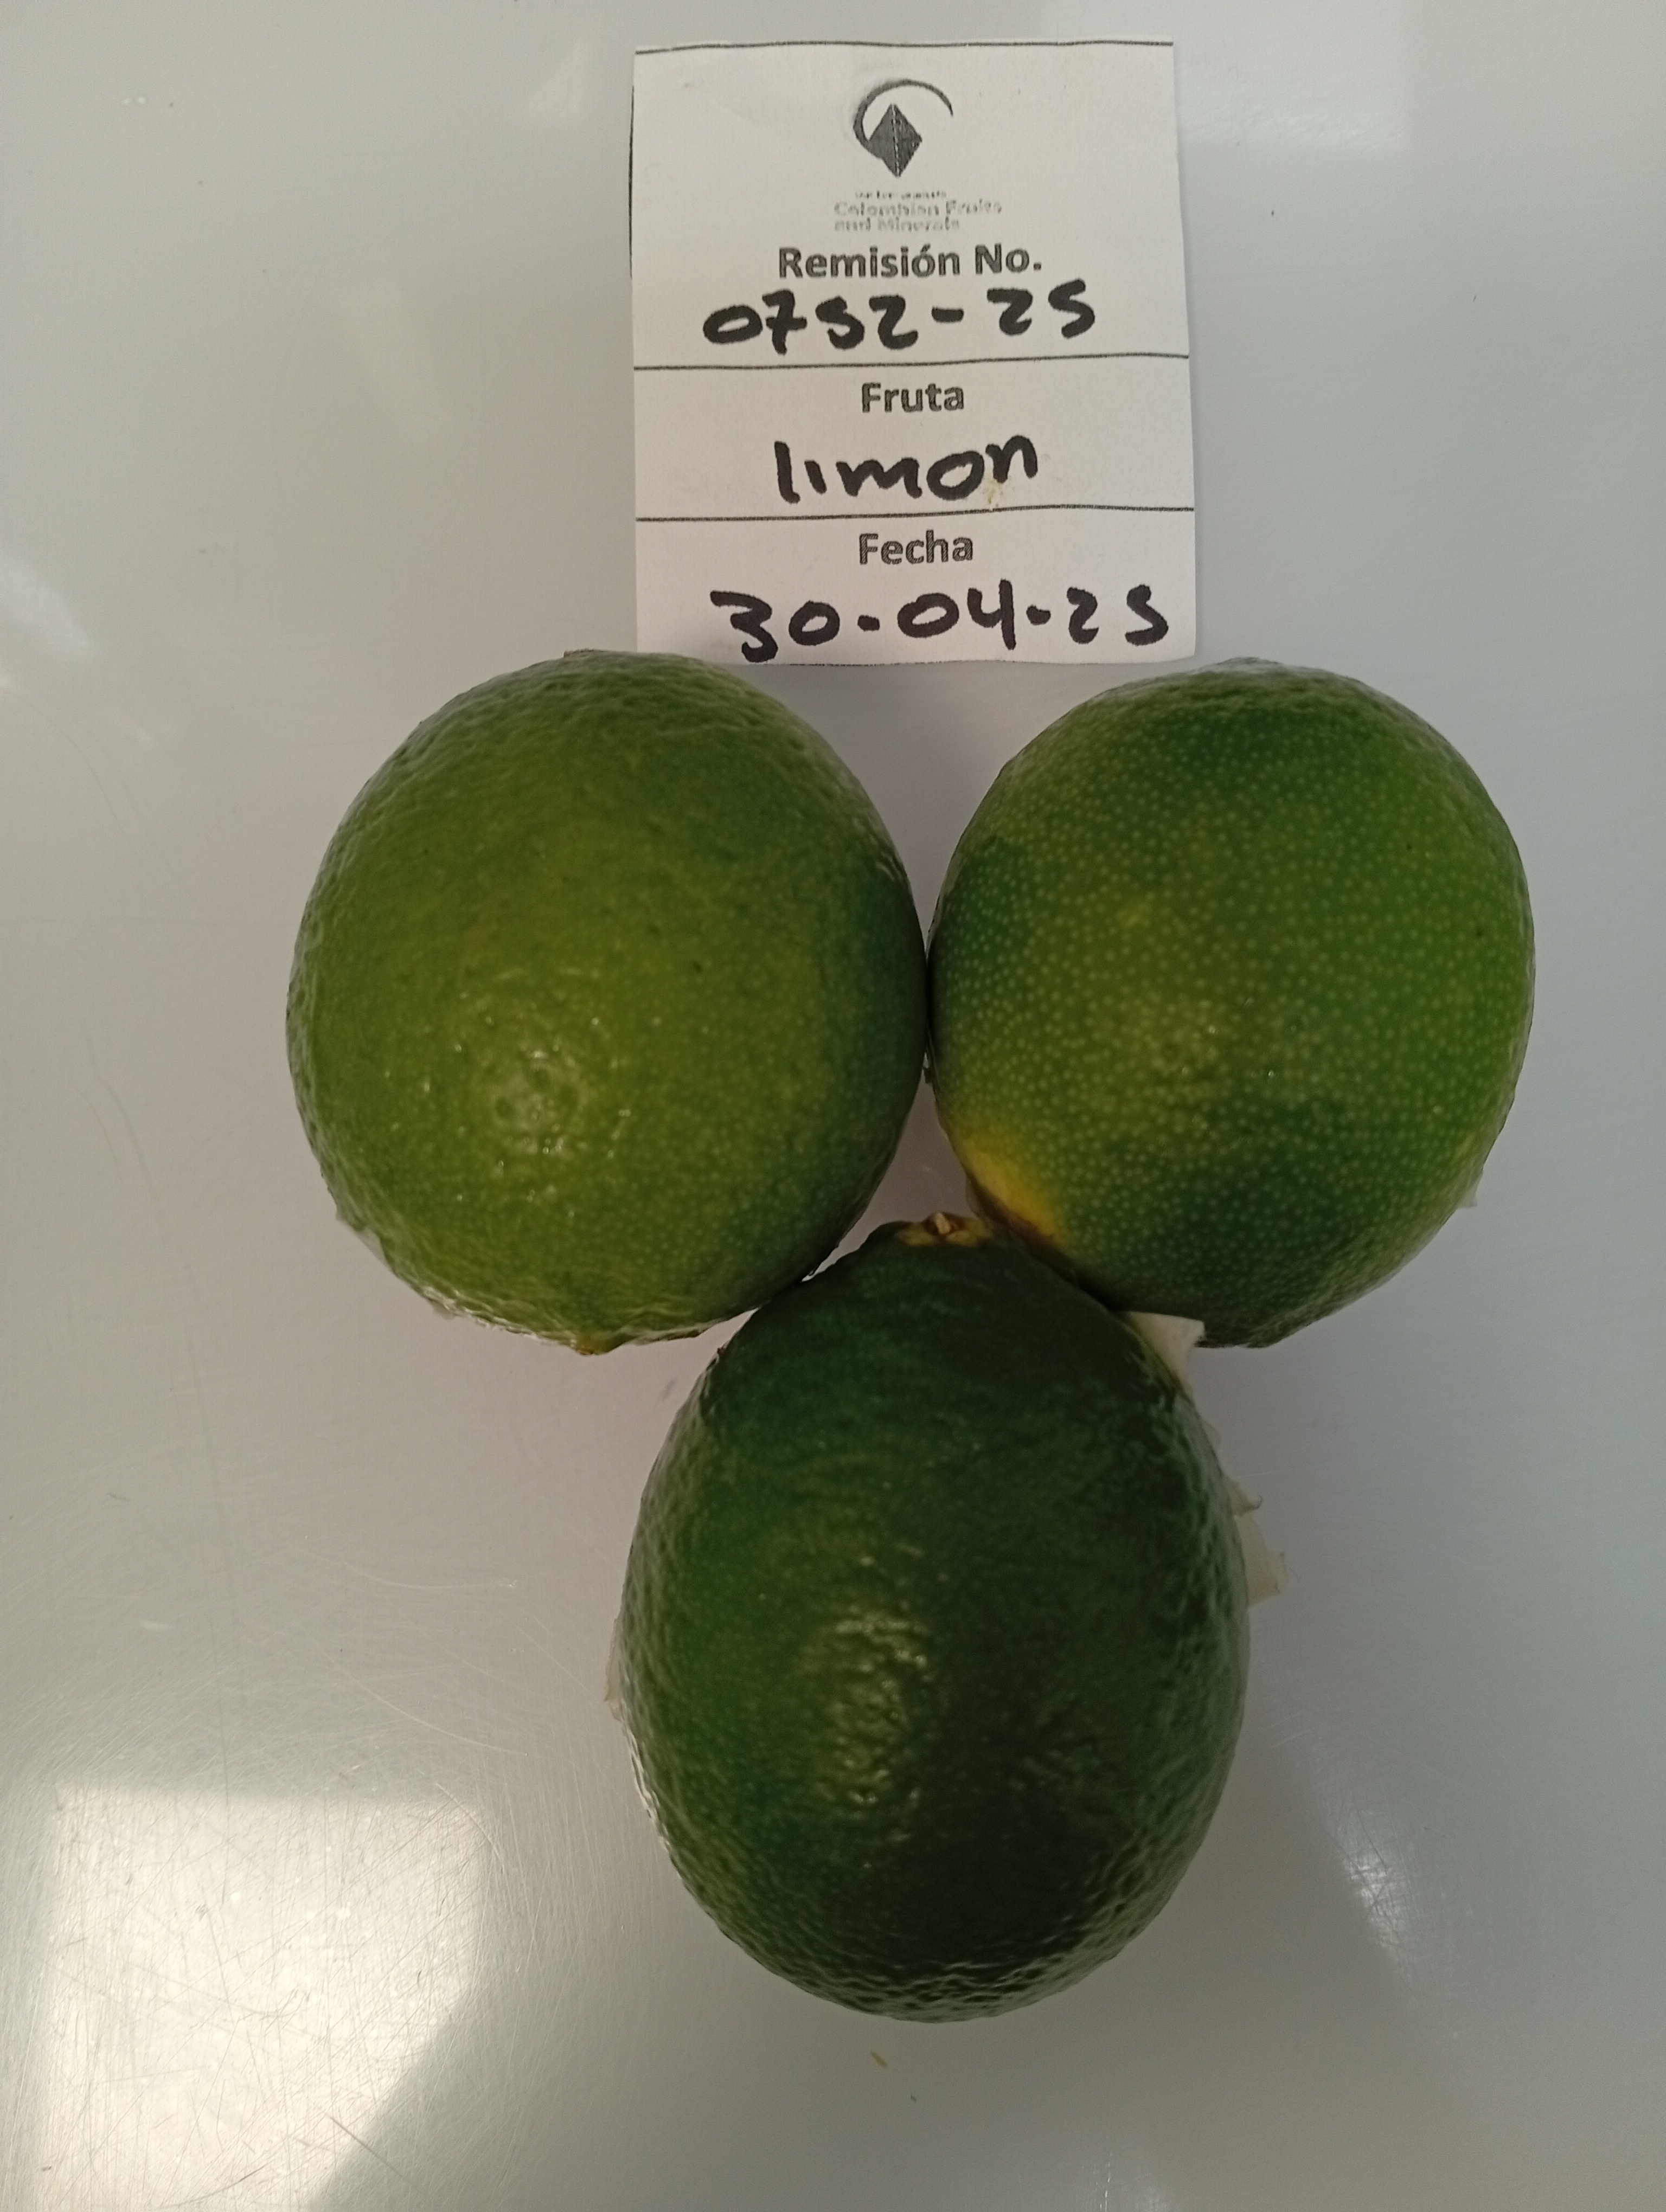 Colombian Fruits
and Minerals
Remisión No.
0752-25
Fruta
limon
Fecha
30-04-25